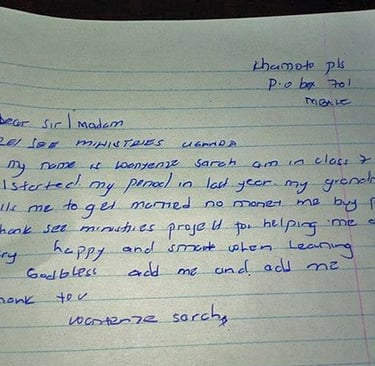 Khamoto pls
P.o box 701
mbale
Dear Sir / Madam
REI SEE MINISTRIES UGANDA
my name is wonyenze sarah am in class 7
I started my period in last year. my grandm
me to get married no money me buy p
Thank see ministries project for helping me a
happy and smart when leaning
Godbless add me and add me
Thank you
sarah